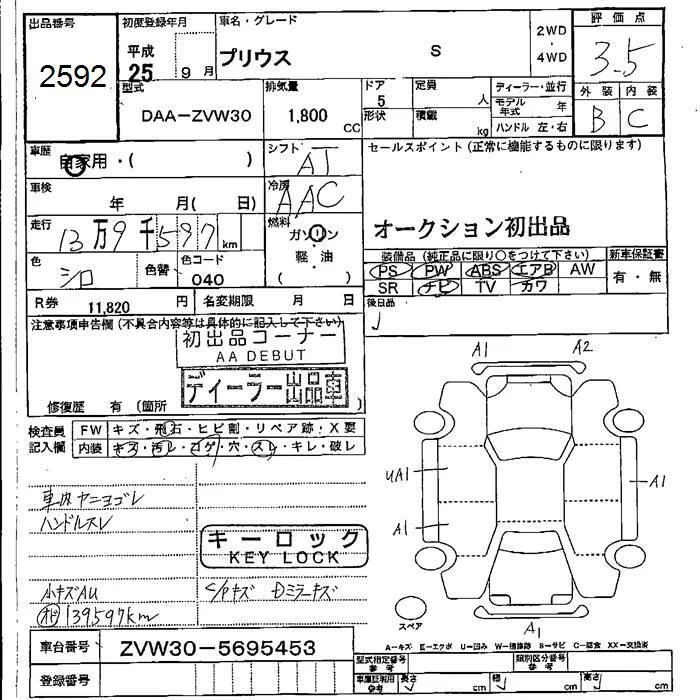 出品番号 初度登録年月 車名・グレード 2WD・4WD 評価点
2592 平成25 9月 プリウス S 3.5
型式 排気量 ドア 定員 ディーラー・並行 外装 内装
DAA-ZVW30 1,800 CC 5 人 モデル年式 年 B C
形状 積載 kg ハンドル 左・右
車歴 自家用・( ) シフト AT セールスポイント(正常に機能するものに限ります)
車検 年 月( 日) 冷房 AAC
走行 13万9千597km 燃料 ガソリン 軽・油 ( )
オークション初出品
色 シロ 色替 色コード 040
装備品(純正品に限り○をつけて下さい) 新車保証書
PS PW ABS エアB AW 有・無
SR ナビ TV カワ
R券 11,820円 名変期限 月 日 後日品
注意事項申告欄(不具合内容等は具体的に記入して下さい)
初出品コーナー
AA DEBUT
ディーラー出品車
修復歴 有 (箇所
検査員記入欄 FW キズ・飛石・ヒビ割・リペア跡・X要
内装 キズ・汚レ・コゲ・穴・スレ・キレ・破レ
A1 A2
UA1 A1
A1
車内ヤニヨゴレ
ハンドルスレ
キーロック
KEY LOCK
小キズAU C/Pキズ Dミラーキズ
139597km
スペア A1
A-キズ E-エクボ U-凹み W-補修跡 S-サビ C-腐食 XX-交換済
車台番号 ZVW30-5695453
型式指定番号 参考 類別区分番号 参考
登録番号
車庫証明用参考 長さ cm 幅 cm 高さ cm